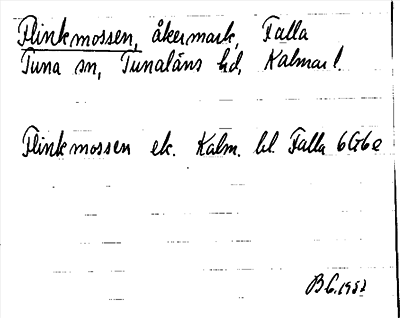 Flinkmossen, åkermark, Falla
Tuna sn, Tunaläns hd, Kalmar l.
Flinkmossen ek. Kalm. bl. Falla 6G6e